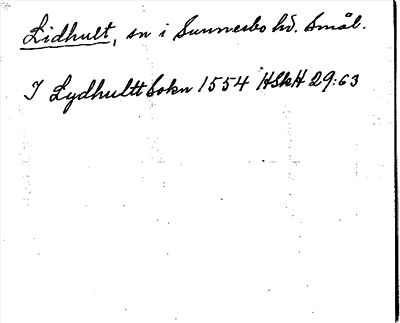 Lidhult, sn i Sunnerbo hd. Smål.
I Lydhultt Sokn 1554 HSkH 29:63